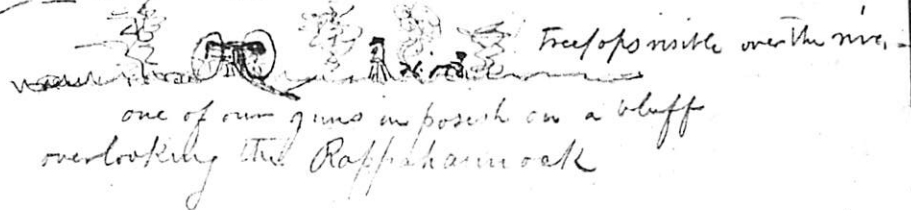 Treetops visible over the river -
one of our guns in posish on a bluff
overlooking the Rappahannoak